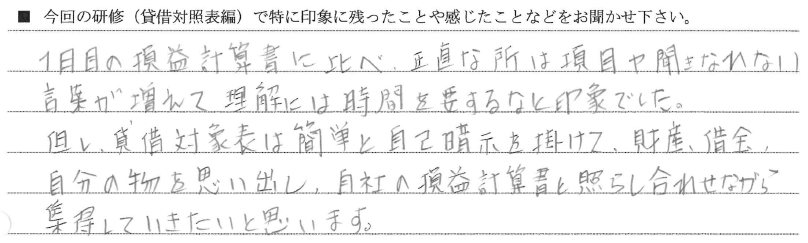 ■ 今回の研修（貸借対照表編）で特に印象に残ったことや感じたことなどをお聞かせ下さい。
1日目の損益計算書に比べ、正直な所は項目や聞きなれない
言葉が増えて理解には時間を要するなと印象でした。
但し、貸借対象表は簡単と自己暗示を掛けて、財産、借金、
自分の物を思い出し、自社の損益計算書と照らし合わせながら
集得していきたいと思います。